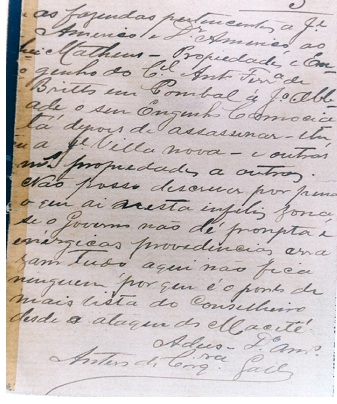 as fazendas pertencentes a Jº
Americo e Dr Americo, ao
Matheus - Propriedade e En-
genho do Cel Antº Ferrª de
Britto em Pombal, á Jº Abba-
de o seu Engenho Camocia-
tá depois de assassinar - 
a Jº Villa nova - e outros
propriedades a outros.
Não posso descrever por
o q. vai nesta infeliz zona,
se o Governo não dé prompta e
energicas providencias arra
zam tudo, aqui não fica
ninguem, por quê é o ponto de
mais vista do Conselheiro
desde o ataque de Maceté.
Adeus - Dº Amº
Antero de Cerqª Galº